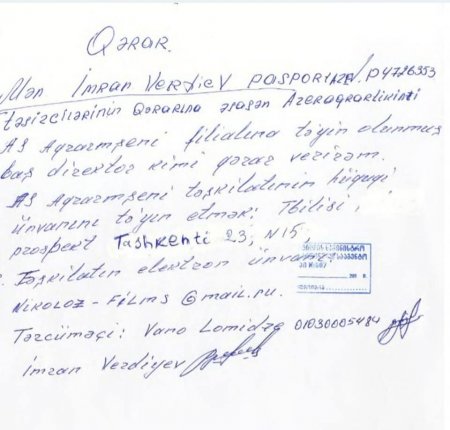 Qərar.
Mən İmran Verdiev pasport AZE P4726353
təsizcilərinin Qərarına əsasən Azeraqrartikinti
AS Agrarmşeni filialına təyin olunmuş
baş direktor kimi qərar verirəm.
AS Agrarmşeni təşkilatının hüquqi
ünvanını təyin etmək: Tbilisi,
prospekt Tashkenti 23, N15,
Təşkilatın elektron ünvanı
Nikoloz-films@mail.ru.
Tərcüməçi: Vano Lomidze 01030005484
İmran Verdiyev